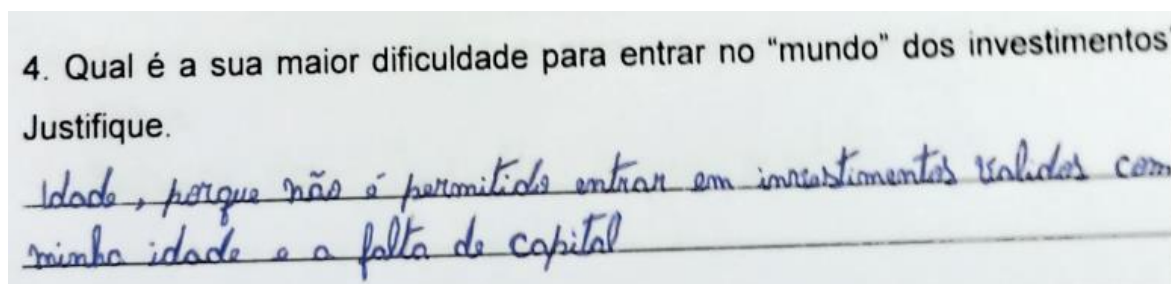 4. Qual é a sua maior dificuldade para entrar no “mundo” dos investimentos
Justifique.
Idade, porque não é permitido entrar em investimentos validos com
minha idade e a falta de capital